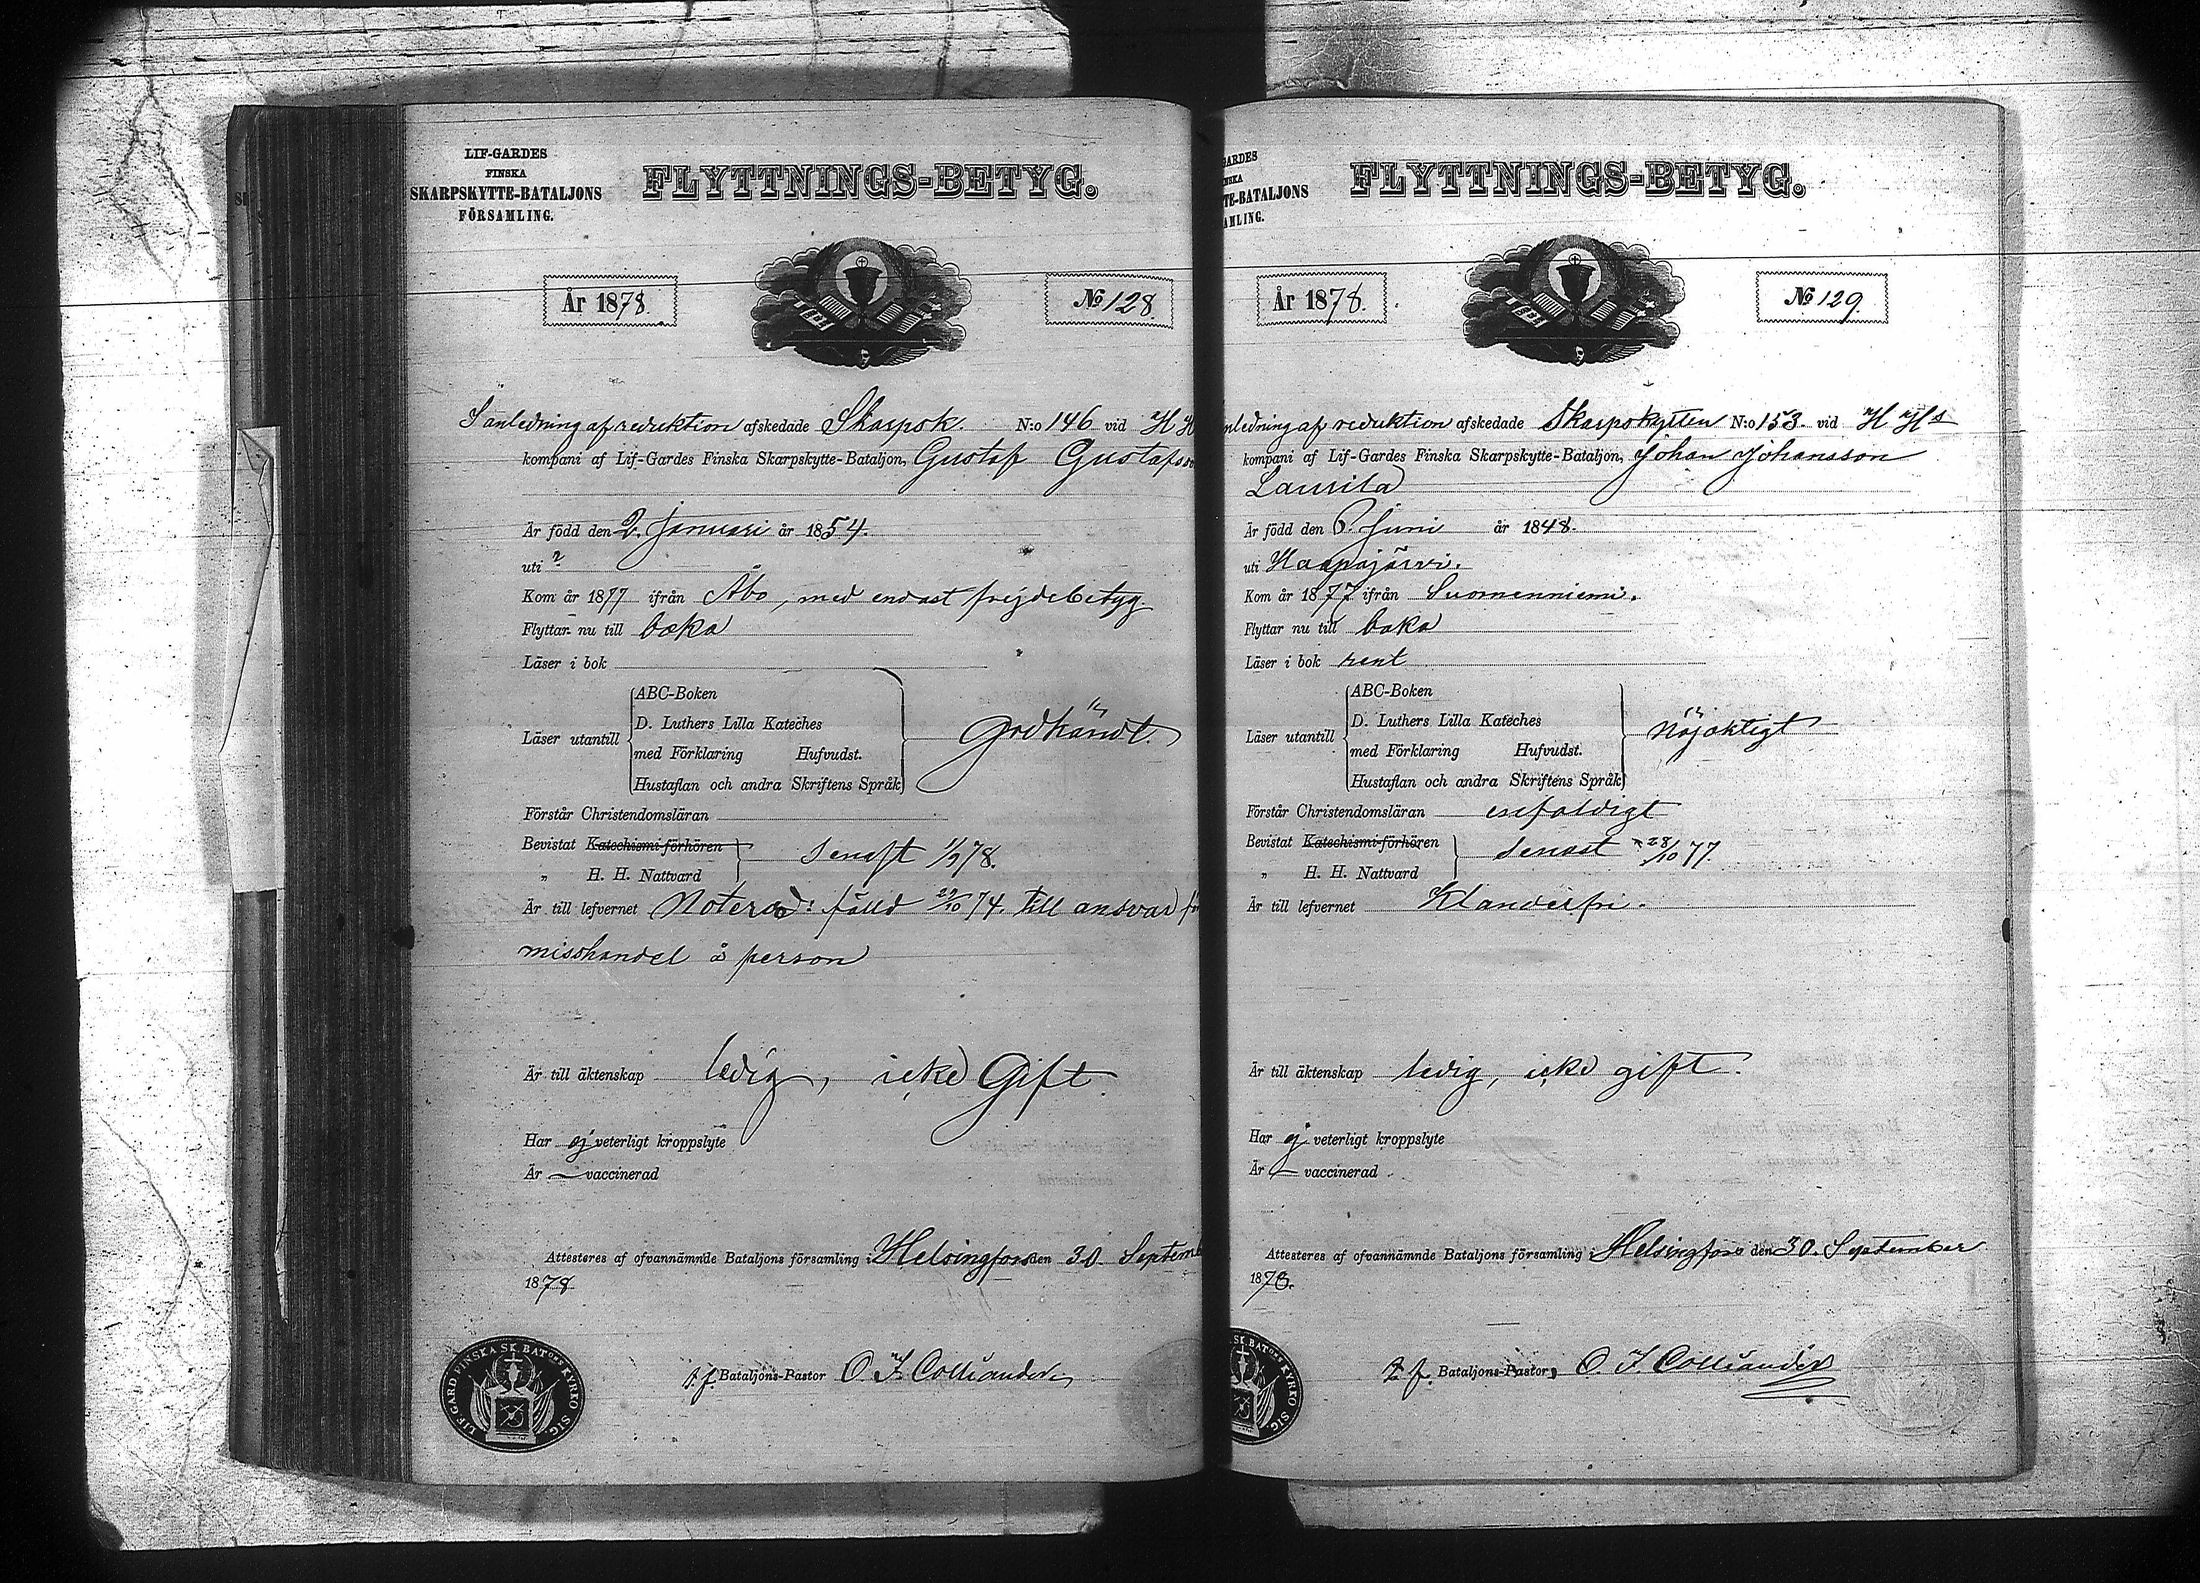 LIF-GARDES
FINSKA
SKARPSKYTTE-BATALJONS
FÖRSAMLING.
FLYTTNINGS-BETYG.
År 1878.
No 128.
I anledning af reduktion afskedade Skarpsk. N:o 146 vid H H
kompani af Lif-Gardes Finska Skarpskytte-Bataljon, Gustaf Gustafsso
Är född den 2. Januari år 1854.
uti ?
Kom år 1877 ifrån Åbo, med endast frejdebetyg.
Flyttar nu till baka
Läser i bok
ABC-Boken
D. Luthers Lilla Kateches
Läser utantill godkändt.
med Förklaring Hufvudst.
Hustaflan och andra Skriftens Språk
Förstår Christendomsläran
Bevistat Katechismi-förhören
senast 1/9 78.
„ H. H. Nattvard
Är till lefvernet Noterad: fälld 29/10 74. till ansvar fö
misshandel å person
Är till äktenskap ledig, icke Gift.
Har ej veterligt kroppslyte
Är — vaccinerad
Attesteres af ofvannämnde Bataljons församling i Helsingfors den 30. Septemb
1878
t. f. Bataljons-Pastor O. F. Colliander
LIF GARD FINSKA SK. BATONS KYRKO SIG.
GARDES
NSKA
TE-BATALJONS
AMLING.
FLYTTNINGS-BETYG.
År 1878.
No 129.
nledning af reduktion afskedade Skarpskytten N:o 153. vid H H s
kompani af Lif-Gardes Finska Skarpskytte-Bataljon, Johan Johansson
Laurila
Är född den 6. Juni år 1848.
uti Haapajärvi.
Kom år 1877 ifrån Suomenniemi.
Flyttar nu till baka
Läser i bok rent
ABC-Boken
D. Luthers Lilla Kateches
Läser utantill nöjaktigt
med Förklaring Hufvudst.
Hustaflan och andra Skriftens Språk
Förstår Christendomsläran enfaldigt
Bevistat Katechismi-förhören
senast 28/10 77.
„ H. H. Nattvard
Är till lefvernet Klanderfri.
Är till äktenskap ledig, icke gift.
Har ej veterligt kroppslyte
Är — vaccinerad
Attesteres af ofvannämnde Bataljons församling i Helsingfors den 30. September
1878.
t. f. Bataljons-Pastor, O. F. Colliander
SK. BATONS KYRKO SIG.